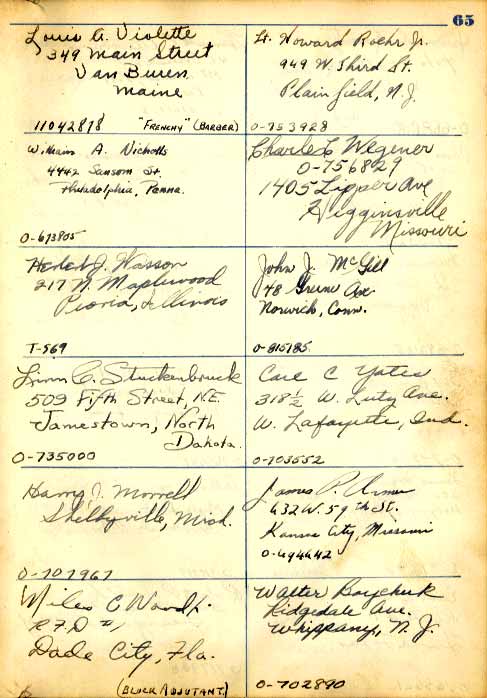 65
Louis A. Violette
349 Main Street
Van Buren
Maine
11042878 "FRENCHY" (BARBER)
Lt. Howard Roehr Jr.
949 W. Third St.
Plainfield, N.J.
O-753928
William A. Nicholls
4442 Sansom St.
Philadelphia, Penna.
O-673805
Charles E Wegener
O-756829
1405 Lipper Ave
Higginsville
Missouri
Herbert J. Wasson
217 N. Maplewood
Peoria, Illinois
T-569
John J. McGill
78 Ave
Norwich, Conn.
O-815185
Linn C. Stuckenbruck
509 Fifth Street, N.E.
Jamestown, North
Dakota.
O-735000
Carl C Yates
318½ W. Lutz Ave.
W. Lafayette, Ind.
O-703552
Harry J. Morrell
Shelbyville, Mich.
O-707967
James P.
632 W. 59th St.
Kansas City, Missouri
O-694642
Miles C
R.F.D #1
Dade City, Fla.
(BLOCK ADJUTANT)
Walter Boychuk
Ridgedale Ave.
Whippany, N.J.
O-702890